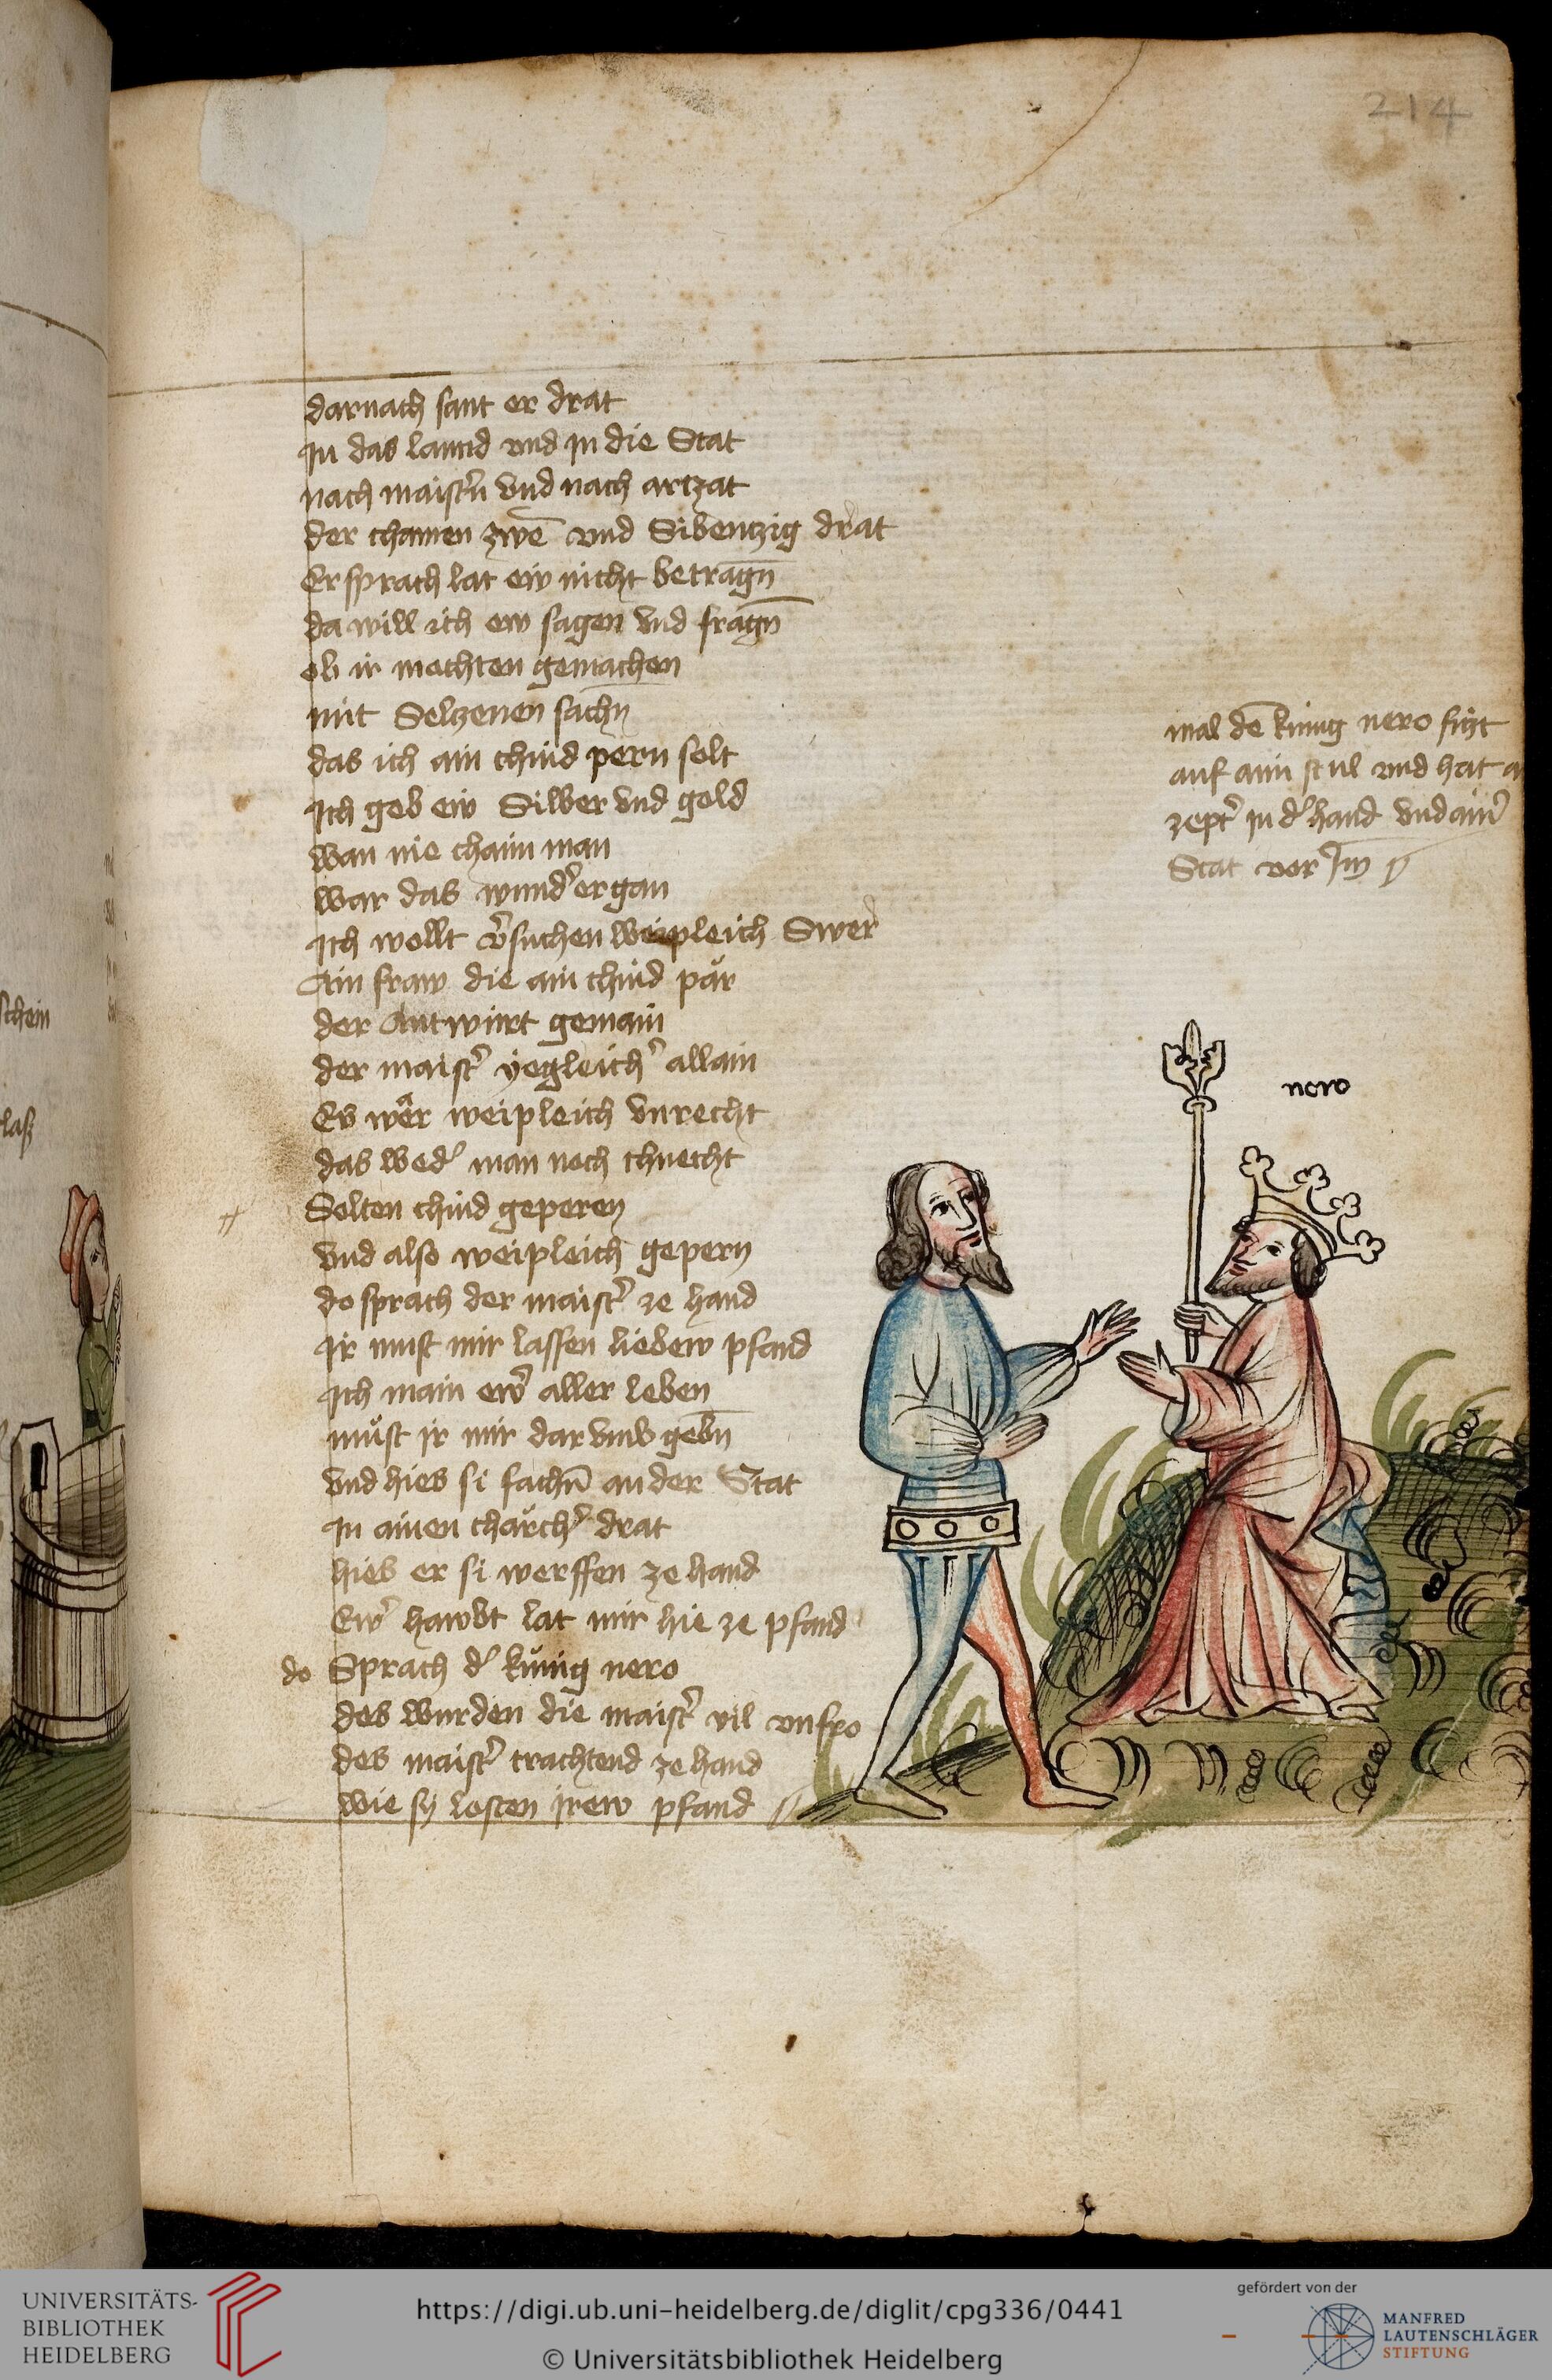 214
darnach sant er drat
In das lannd vnd jn die Stat
nach maistn̄ vnd nach artzat
der chamen zwē vnd Sibentzig drat
Er sprach lat ew nicht betragn̄
da will ich ew sagen vnd fragn̄
ob ir mochten gemachen
mit Seltzenen sachn̄
das ich ain chind pern solt
Ich geb ew Silber vnd gold
wan nie chaim man
war das wund' ergan
Ich wollt v'suchen weipleich Swer
Ain fraw die ain chind pär
der Antwurt gemain
der maist' yegleich' allain
Es wer weipleich vnrecht
das wed' man noch chnecht
Solten chind geperen
vnd also weipleich gepern
do sprach der maist' ze hand
Ir must mir lassen liebew pfand
Ich main ew' aller leben
must jr mir dar vmb gebn̄
vnd hies si fachn̄ an der Stat
In ainen chärch' drat
hies er si werffen ze hand
Ew' hawbt lat mir hie ze pfand
do Sprach d' künig nero
des wurden die maist' vil vnfro
des maist' trachtend ze hand
wie sy losten jrew pfand
mal dē künig nero sizt
auf aim stul vnd hat a
zept' jn d' hand vnd ain'
Stat vor Im
nero
schein
las
UNIVERSITÄTS-
BIBLIOTHEK
HEIDELBERG
https://digi.ub.uni-heidelberg.de/diglit/cpg336/0441
© Universitätsbibliothek Heidelberg
gefördert von der
MANFRED
LAUTENSCHLÄGER
STIFTUNG